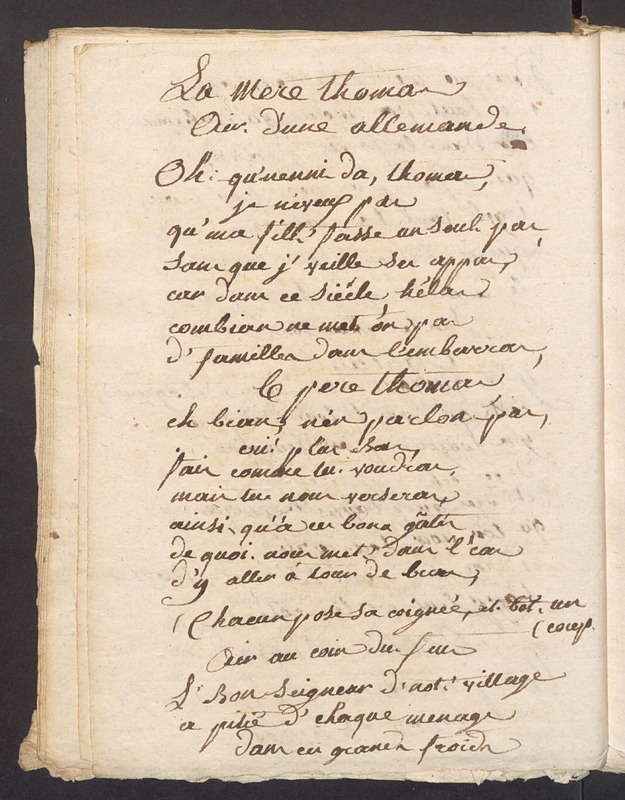 La mere thomas
Air. d'une allemande.
Oh. qu'nenni da, thomas,
je n'veux pas
qu'ma fill' fasse un seul pas
sans que j' veille ses appas,
car dans ce siécle hélas
combian ne met on pas
d' familles dans l'embarras,
le pere thomas
eh bian, n'en parlons pas,
cri' plus bas,
fais comme tu voudras,
mais tu nous verseras,
ainsi qu'à ces bons gâs
de quoi nous mett' dans l'cas
d'y aller à tour de bras,
(Chacun pose sa coignée, et boit un
(coup.
Air au coin du feu
L' bon seigneur d'not' village
a pitié d' chaque menage
dans ces grands froids